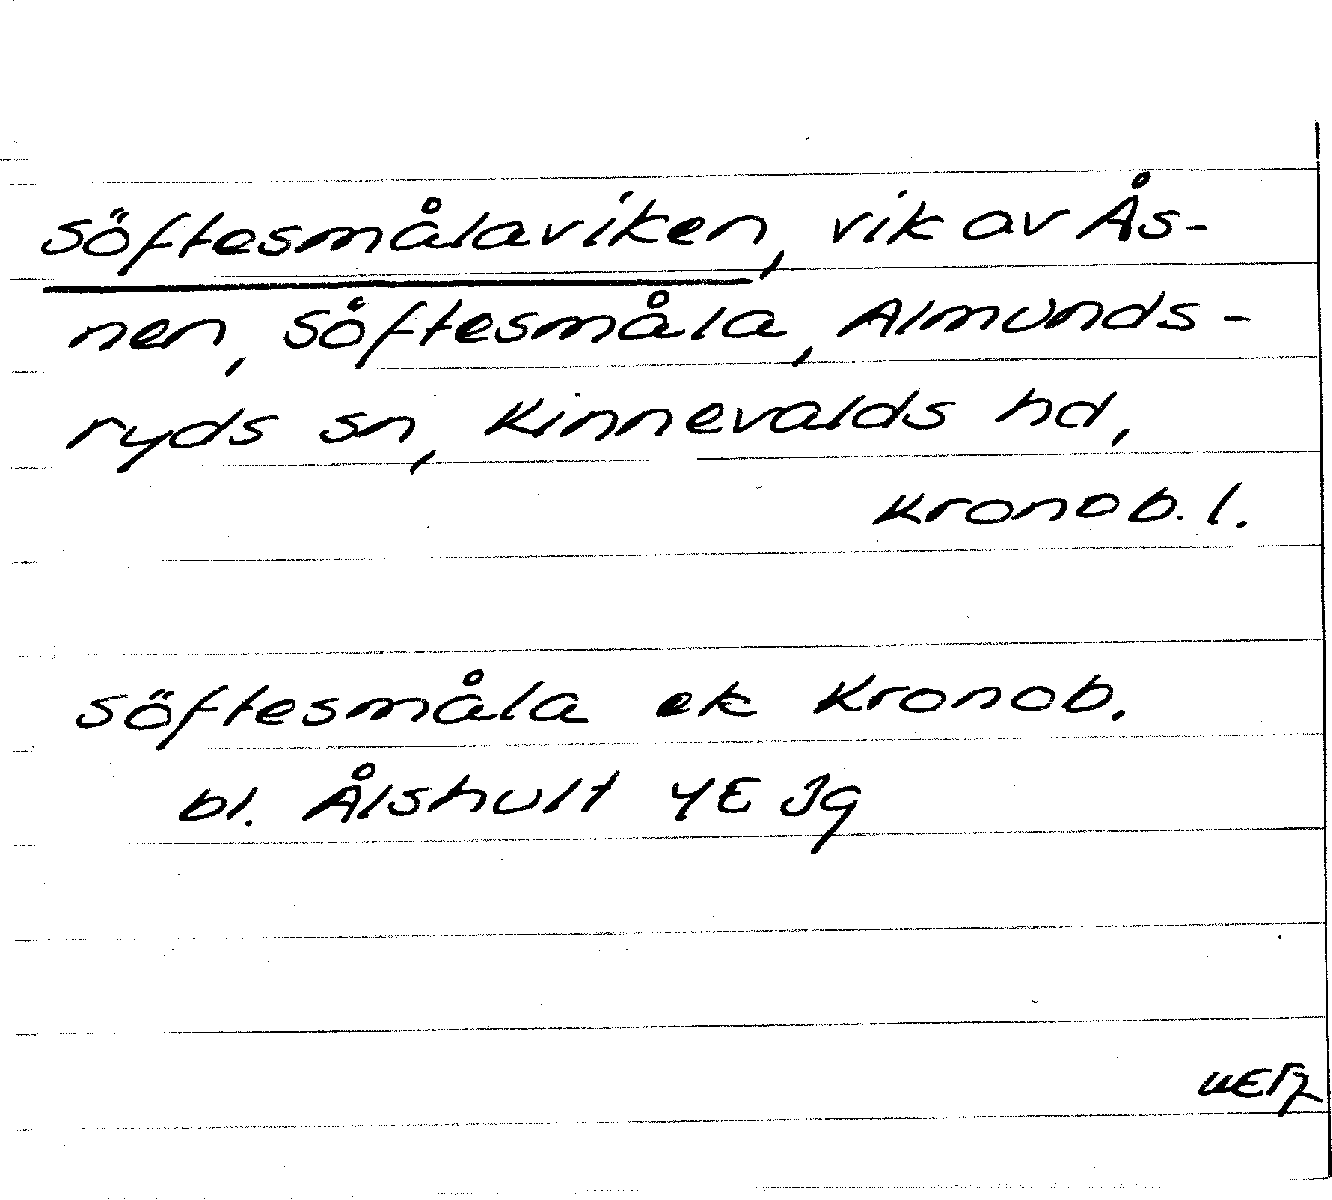 Söftesmålaviken, vik av Ås-
nen, Söftesmåla, Almunds-
ryds sn, Kinnevalds hd,
Kronob. l.
Söftesmåla ek Kronob.
bl. Ålshult 4E Jg